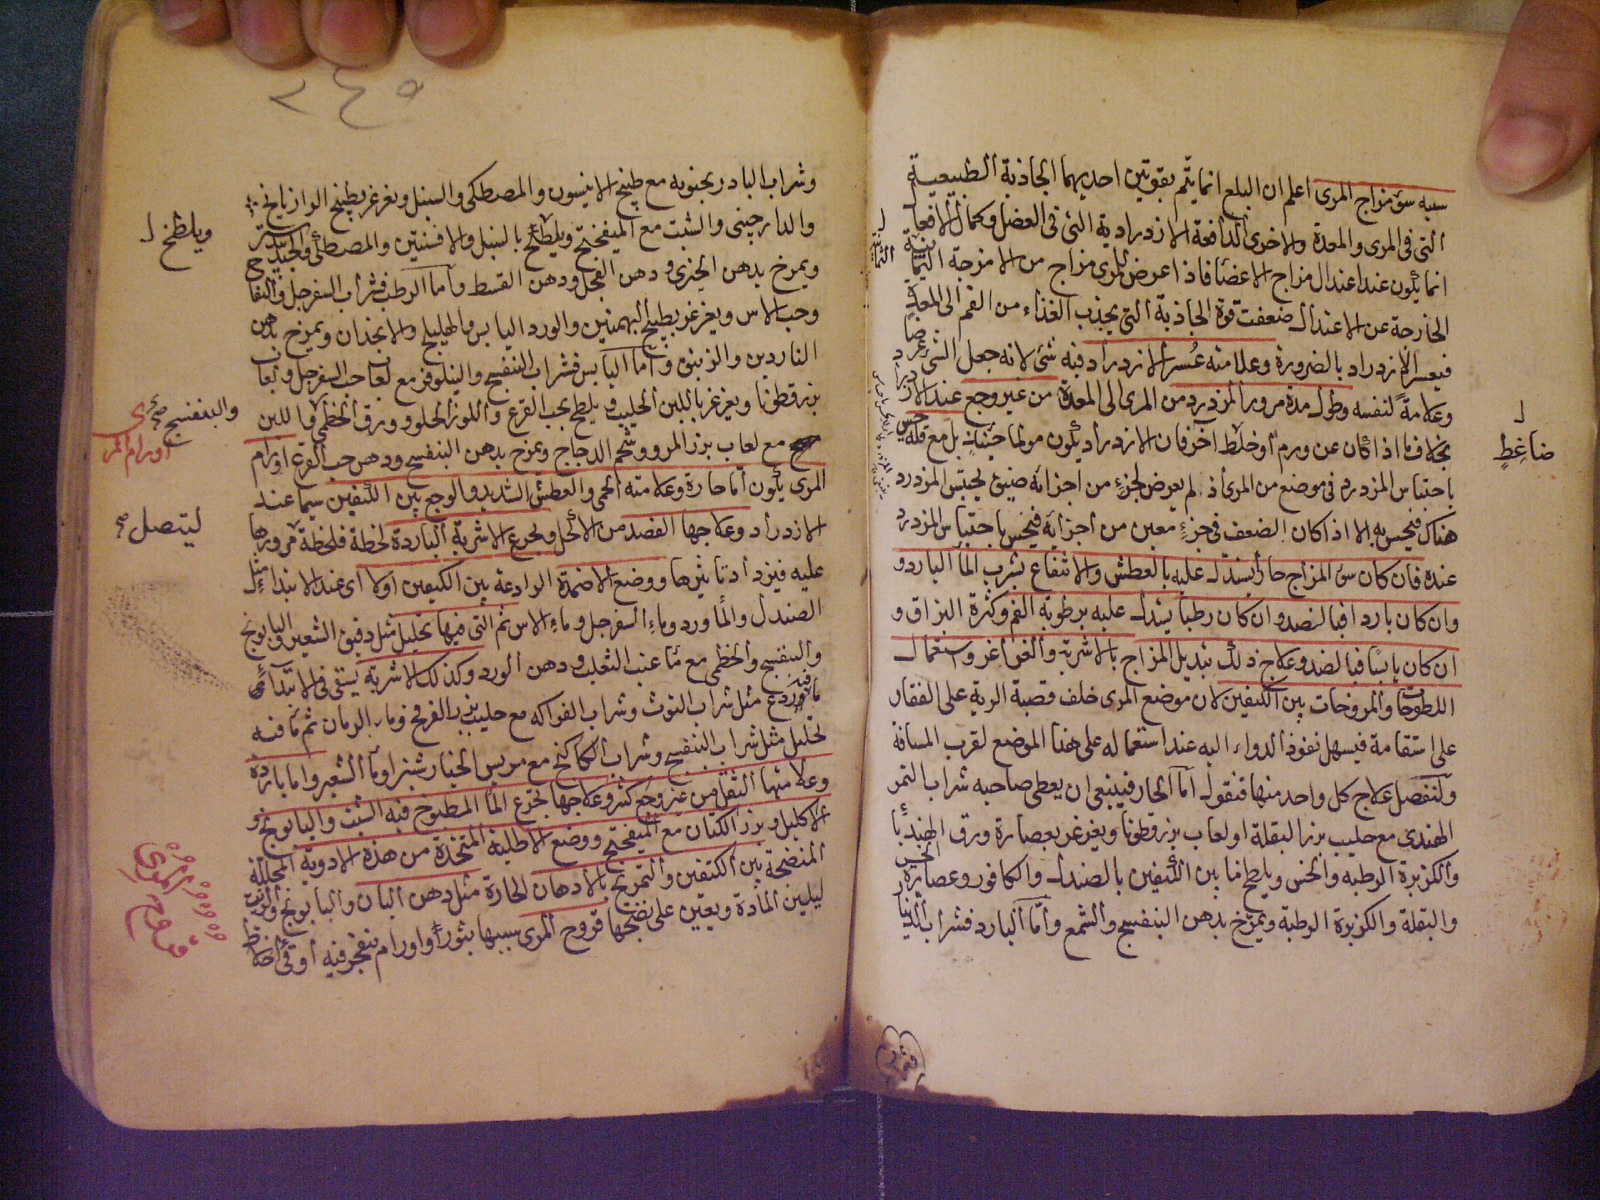 سببه سوء مزاج المرى اعلم ان البلع انما يتم بقوتين احديهما الجاذبة الطبيعية
التى فى المرى والمعدة والاخرى الدافعة الازدرادية التى فى العضل وكمال الافعال
انما يكون عند اعتدال مزاج الاعضا فاذا عرض للمرى مزاج من الامزجة الثمانية
الخارجة عن الاعتدال ضعفت قوة الجاذبة التى يجذب الغذاء من الفم الى المعدة
فيعسر الازدراد بالضرورة وعلامته عسر الازدراد فيه شئ لانه جعل الشئ
وعلامة لنفسه وطول مدة مرور المزدرد من المرى الى المعدة من غير وجع عند الازدراد
بخلاف ما اذا كان عن ورم او خلط اخر فان الازدراد يكون مولما بل مع قلة
باحتباس المزدرد فى موضع من المرى اذ لم يعرض لجزء من اجزائه ضيق يحتبس المزدرد
هناك فيحس به الا اذا كان الضعف فى جزء معين من اجزائه فيحس باحتباس المزدرد
عنده فان كان سوء المزاج حارا يستدل عليه بالعطش والانتفاع بشرب الماء البارد و
وان كان باردا فبالضد وان كان رطبا يستدل عليه برطوبة الفم وكثرة البزاق و
ان كان يابسا فبالضد وعلاج ذلك تبديل المزاج بالاشربة والغراغر واستعمال
اللطوخات والمروخات بين الكتفين لان موضع المرى خلف قصبة الرية على الفقار
على استقامة فيسهل نفوذ الدواء اليه عند استعماله على هذا الموضع لقرب المسافة
ولنفصل علاج كل واحد منها فنقول اما الحار فينبغى ان يعطى صاحبه شراب التمر
الهندى مع حليب بزر البقلة او لعاب بزرقطونا ويغرغر بعصارة ورق الهندبا
والكزبرة الرطبة والخس ويلطخ ما بين الكتفين بالصندل والكافور وعصارة الخس
والبقلة والكزبرة الرطبة ويمرخ بدهن البنفسج والشمع واما البارد فشراب الدينار
ضاغط
وشراب البادرنجبويه مع طبيخ الانيسون والمصطكى والسنبل ويغرغر بطبيخ الرازيانج
والدارجينى والشبت مع الميفختج ويلطخ بالسنبل والافسنتين والمصطكى والجندبيدستر
ويمرخ بدهن الخيرى ودهن الفجل ودهن القسط واما الرطب فشراب السفرجل والتفاح
وحب الاس ويغرغر بطبيخ البهمنين والورد اليابس والهليلج والانجدان ويمرخ بدهن
الناردين والزنبق واما اليابس فشراب البنفسج والنيلوفر مع لعاب حب السفرجل ولعاب
بزرقطونا ويغرغر باللبن الحليب ويلطخ بحب القرع واللوز الحلو وورق الخطمى باللبن
مع لعاب بزر المرو وشحم الدجاج ويمرخ بدهن البنفسج ودهن حب القرع اورام
المرى يكون اما حارة وعلامته الحمى والعطش الشديد والوجع بين الكتفين سيما عند
الازدراد وعلاجها الفصد من الاكحل وتجرع الاشربة الباردة لحظة فلحظة مرورها
عليه فيزداد تاثيرها ووضع الاضمدة الرادعة بين الكتفين اولا اى عند الابتداء مثل
الصندل والماورد وماء السفرجل وماء الاس ثم التى فيها تحليل مثل دقيق الشعير والبابونج
والبنفسج والخطمى مع ماء عنب الثعلب ودهن الورد وكذلك الاشربة يسقى فى الابتداء
ما فيه ردع مثل شراب التوث وشراب الفواكه مع حليب بزر الفرفخ وماء الرمان ثم ما فيه
تحليل مثل شراب البنفسج وشراب الكاكنج مع مريس الخيارشنبر وماء الشعير واما باردة
وعلامتها الثقل من غير وجع كثير وعلاجها تجرع الماء المطبوخ فيه الشبت والبابونج و
الاكليل وبزر الكتان مع الميفختج ووضع الاطلية المتخذة من هذه الادوية المحللة
المنضجة بين الكتفين والتمريخ بالادهان الحارة مثل دهن البان والبابونج والزيت
ليلين المادة ويعين على نضجها قروح المرى سببها بثور او اورام تنفجر فيه او قئ اخلاط
ويلطخ
والبنفسج صح
اورام المرى
ليتصل صح
قروح المرى
٢٤٥